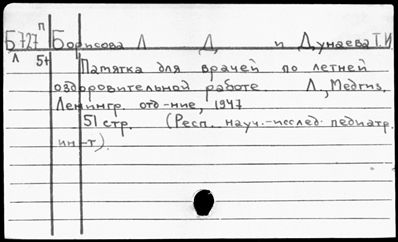 П
Б727 Борисова Л Д, и Дунаева Т.И
Л 5+ Памятка для врачей по летней
оздоровительной работе. Л., Медгиз,
Ленингр. отд-ние, 1947
51 стр. (Респ. науч.-исслед. педиатр.
ин-т).